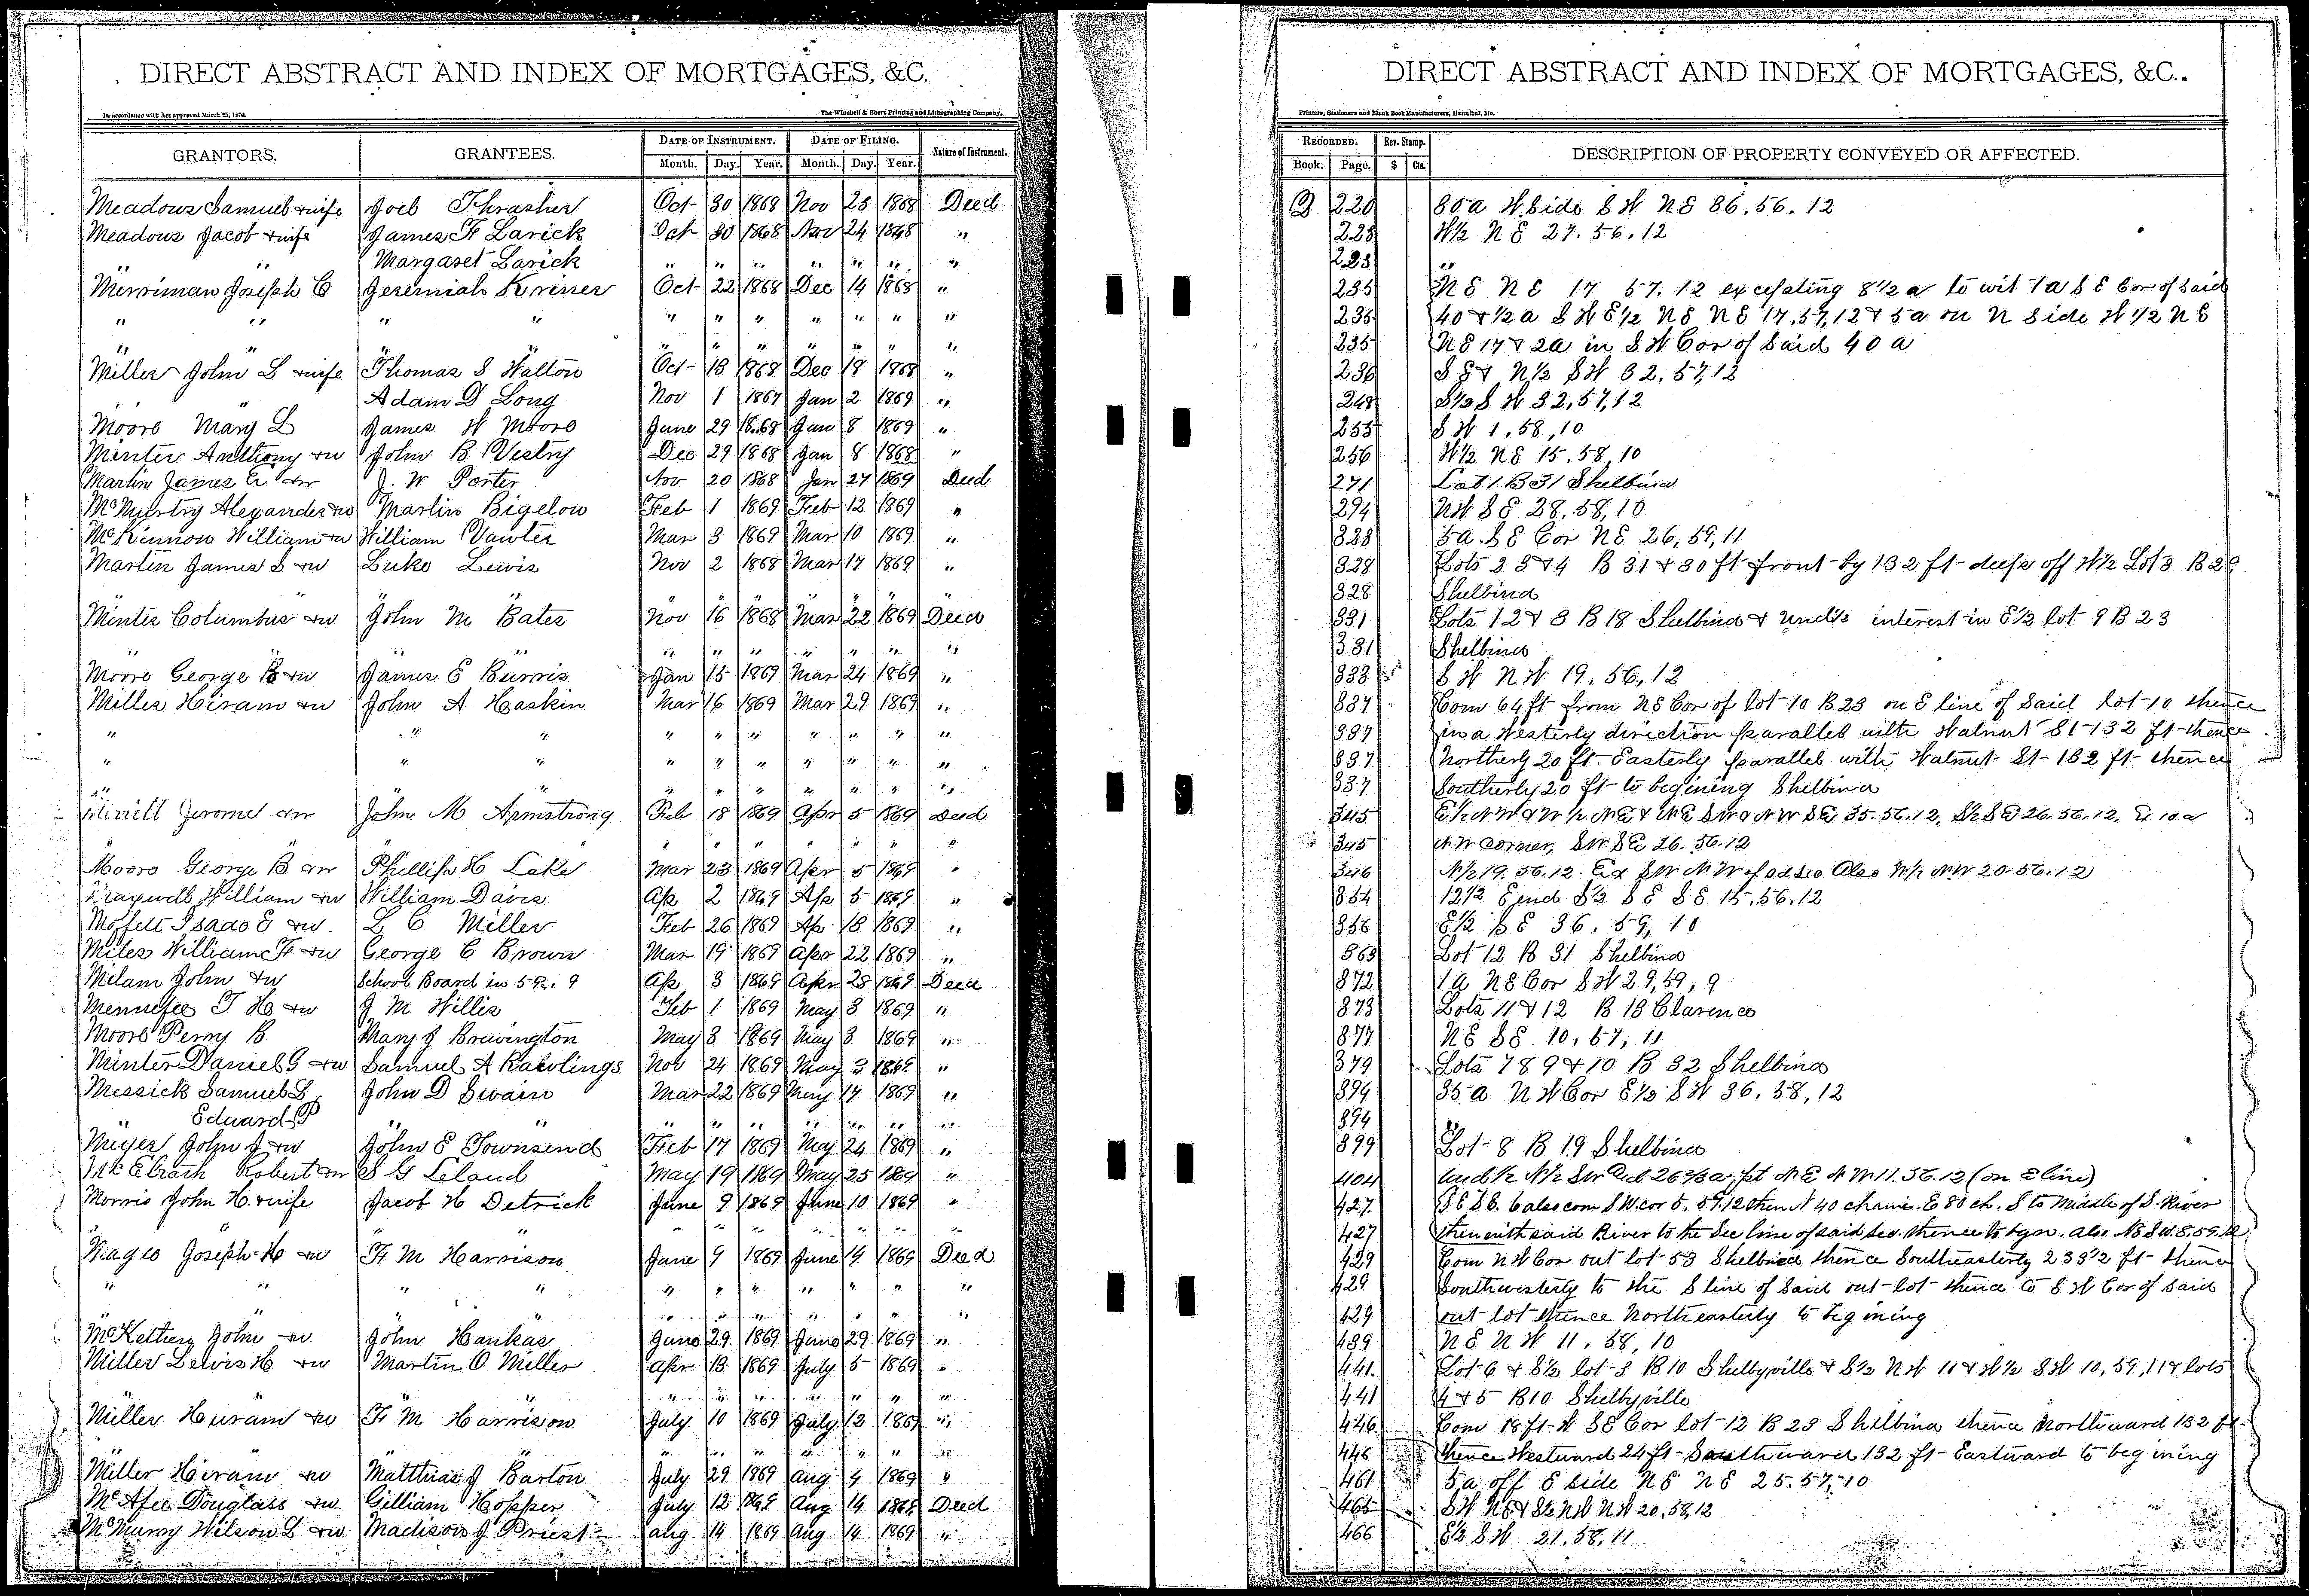 DIRECT ABSTRACT AND INDEX OF MORTGAGES, &C.
In accordance with Act approved March 25, 1870.
The Winchell & Ebert Printing and Lithographing Company,
GRANTORS. GRANTEES. DATE OF INSTRUMENT. DATE OF FILING. Nature of Instrument.
Month. Day. Year. Month. Day. Year.
Meadows Samuel & wife Joel Thrasher Oct 30 1868 Nov 23 1868 Deed
Meadows Jacob & wife James H Larick Oct 30 1868 Nov 24 1868 "
" Margaret Larick " " " " " " "
Merriman Joseph C Jeremiah Oct 22 1868 Dec 14 1868 "
" " " " " " " " " " "
" " " " " " " " " " "
Miller John L & wife Thomas S Walton Oct 13 1868 Dec 19 1868 "
Adam D Long Nov 1 1867 Jan 2 1869 "
Moore Mary L James W Moore June 29 1868 Jan 8 1869 "
Minter Anthony & w John B Vestry Dec 29 1868 Jan 8 1868 "
Martin James & w J. W Porter Nov 20 1868 Jan 27 1869 Deed
McMurtry Alexander & w Martin Bigelow Feb 1 1869 Feb 12 1869 "
McKinnon William & w William Vawter Mar 3 1869 Mar 10 1869 "
Martin James S & w Luke Lewis Nov 2 1868 Mar 17 1869 "
" " " " " " " " "
Minter Columbus & w John M Bates Nov 16 1868 Mar 22 1869 Deed
" " " " " " " " " "
Moore George B & w James E Burris Jan 15 1869 Mar 24 1869 "
Miller Hiram & w John A Haskin Mar 16 1869 Mar 29 1869 "
" " " " " " " " " "
" " " " " " " " " "
" " " " " " " " "
Merrill Jerome & w John M Armstrong Feb 18 1869 Apr 5 1869 Deed
" " " " " " " "
Moore George B & w Phillip H Lake Mar 23 1869 Apr 5 1869 "
Maxwell William & w William Davis Ap 2 1869 Ap 5 1869 "
Moffett Isaac E & w. L C Miller Feb 26 1869 Ap 13 1869 "
Miles William H & w George C Brown Mar 19 1869 Apr 22 1869 "
Milam John & w School Board in 5 R. 9 Ap 3 1869 Apr 28 1869 Deed
Mennefee T H & w J M Willis Feb 1 1869 May 3 1869 "
Moore Perry B Mary J Brewington May 3 1869 May 3 1869 "
Minter Daniel G & w Samuel A Rawlings Nov 24 1869 May 3 1869 "
Messick Samuel L John D Swain Mar 22 1869 May 17 1869 "
" Edward P " " " " " " " " "
Meyer John J & w John E Townsend Feb 17 1869 May 24 1869 "
Robert & w S G Leland May 19 1869 May 25 1869 "
Morris John H. & wife Jacob H Detrick June 9 1869 June 10 1869 "
" " " " " " " " "
Magee Joseph H & w F M Harrison June 9 1869 June 14 1869 Deed
" " " " " " " " " " "
" " " " " " " " " " "
John & w John Hankas June 29 1869 June 29 1869 "
Miller Lewis H & w Martin O Miller Apr 13 1869 July 5 1869 "
" " " " " " " " " "
Miller Huram & w F M Harrison July 10 1869 July 13 1869 "
" " " " " " " " " "
Miller Hiram & w Matthias J Barton July 29 1869 Aug 4 1869 "
McAfee Douglass & w Gilliam Hopper July 12 1869 Aug 14 1869 Deed
McMurray Wilson L & w Madison J Priest Aug 14 1869 Aug 14 1869 "
DIRECT ABSTRACT AND INDEX OF MORTGAGES, &C.
Printers, Stationers and Blank Book Manufacturers, Hannibal, Mo.
RECORDED. Rev. Stamp. DESCRIPTION OF PROPERTY CONVEYED OR AFFECTED.
Book. Page. $ Cts.
220 80 a W. Side S W N E 36. 56. 12
228 W½ N E 27. 56. 12
228 "
235 N E N E 17 57. 12 excepting 8½ a to wit 1 a S E Cor of Said
235 40 & ½ a S W E½ N E N E 17, 57, 12 & 5 a on N Side W ½ N E
235 N E 17 & 2a in S W Cor of Said 40 a
236 S E & N½ S W 32, 57, 12
248 S½ S W 32, 57, 12
255 S W 1, 58, 10
256 W½ N E 15. 58, 10
271 Lot 1 B 31 Shelbina
294 NW S E 28, 58, 10
323 5 a. S E Cor N E 26, 59, 11
328 Lots 2 3 & 4 B 31 & 30 ft front by 132 ft deep off W½ Lot 3 B 26
328 Shelbina
331 Lots 1 2 & 3 B 18 Shelbina & Und½ interest in E½ lot 9 B 23
331 Shelbina
333 S W N W 19, 56, 12
337 Com 64 ft from N E Cor of lot 10 B 23 on E line of Said lot 10 thence
337 in a Westerly direction parallel with Walnut St 132 ft thence
337 Northerly 20 ft Easterly parallel with Walnut St 132 ft thence
337 Southerly 20 ft to begining Shelbina
345 E½ N W & W ½ N E & N E S W & N W S E 35. 56. 12, S½ S E 26. 56. 12, E 10 a
345 N W Corner, S W S E 26. 56. 12
346 N½ 19. 56. 12. Ex S W N W of Sd Sec Also W½ N W 20. 56. 12
354 12½ E end S½ S E S E 15, 56. 12
358 E½ S E 36. 59, 10
363 Lot 12 B 31 Shelbina
372 1 a N E Cor S W 29, 59, 9
373 Lots 11 & 12 B 13 Clarence
377 N E S E. 10, 57, 11
379 Lots 7 8 9 & 10 B 32 Shelbina
394 35 a N W Cor E½ S W 36. 58, 12
394 "
399 Lot 8 B 19 Shelbina
404 Und ½ N½ S W 11. 56. 12 (on E line)
427 S E S E. 6 also com S W. cor 5. 59. 12 then N 40 chains. E 80 ch. S to Middle of S. River
427 then with said River to the Sec line of said sec. thence to bgn. Also
429 Com N W Cor out lot 53 Shelbina thence Southeasterly 233½ ft thence
429 Southwesterly to the S line of Said out lot thence to S W Cor of Said
429 out lot thence Northeasterly to begining
439 N E N W 11. 58, 10
441 Lot 6 & S½ lot 3 B 10 Shelbyville & S½ N W 11 & W½ S W 10, 59, 11 & lots
441 4 & 5 B 10 Shelbyville
446 Com 18 ft W S E Cor lot 12 B 23 Shelbina thence Northward 132 ft
446 thence Westward 24 ft Southward 132 ft Eastward to begining
461 5 a off E Side N E N E 25. 57, 10
465 S W N E & S½ N W N W 20, 58, 12
466 E½ S W 21. 58, 11